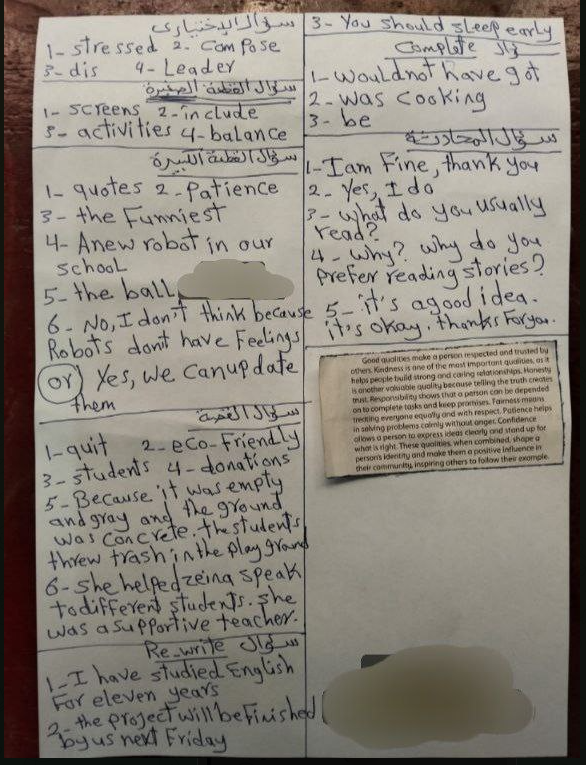 سؤال الإختياري
1- stressed 2- Compose
3- dis 4- Leader
سؤال القطعة الصغيرة
1- screens 2- include
3- activities 4- balance
سؤال القطعة الكبيرة
1- quotes 2- Patience
3- the Funniest
4- Anew robot in our
school
5- the ball
6- No, I don't think because
Robots dont have Feelings
(or) Yes, we can update
them
سؤال القصة
1- quit 2- eco-Friendly
3- students 4- donations
5- Because it was empty
and gray and the ground
was concrete. the students
threw trash in the play ground
6- She helped zeina speak
to different students. she
was a supportive teacher.
سؤال Re-write
1- I have studied English
For eleven years
2- the project will be Finished
by us next Friday
3- You should sleep early
سؤال Complete
1- would not have got
2- was cooking
3- be
سؤال المحادثة
1- I am Fine, thank you
2- Yes, I do
3- what do you usually
read?
4- Why? why do you
prefer reading stories?
5- it's a good idea.
it's okay. thanks For you.
Good qualities make a person respected and trusted by
others. Kindness is one of the most important qualities, as it
helps people build strong and caring relationships. Honesty
is another valuable quality because telling the truth creates
trust. Responsibility shows that a person can be depended
on to complete tasks and keep promises. Fairness means
treating everyone equally and with respect. Patience helps
in solving problems calmly without anger. Confidence
allows a person to express ideas clearly and stand up for
what is right. These qualities, when combined, shape a
person's identity and make them a positive influence in
their community, inspiring others to follow their example.